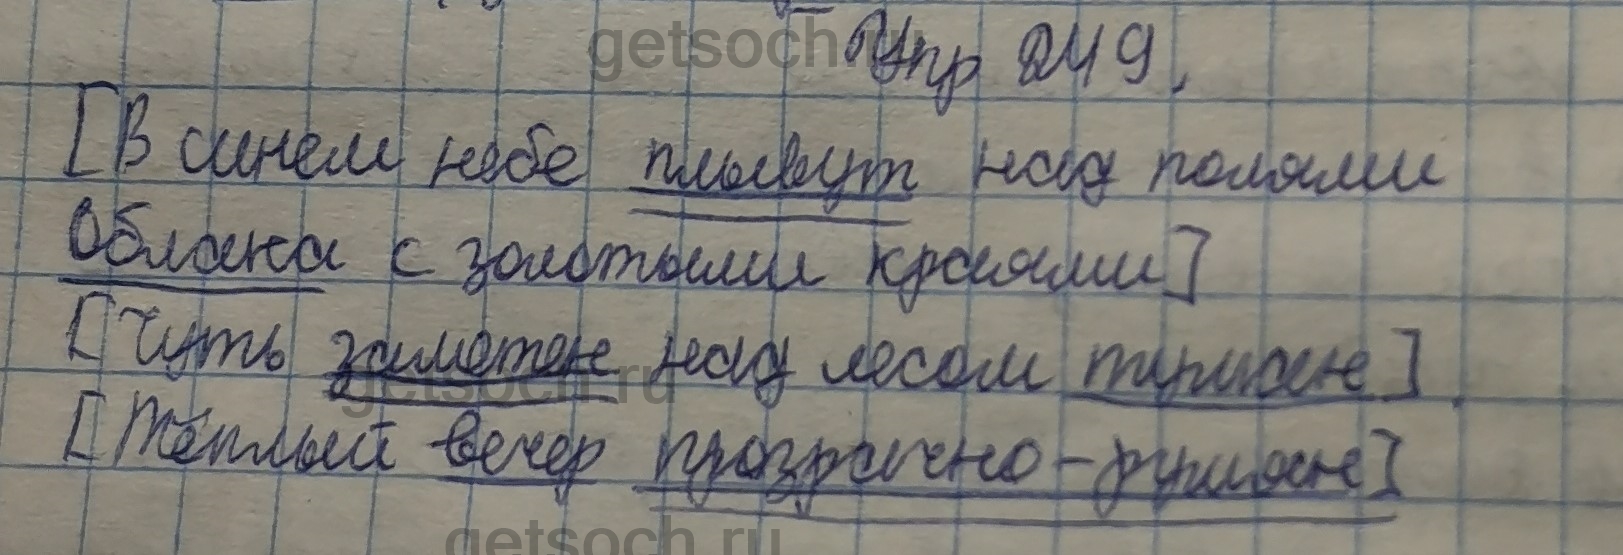 Упр 249.
[В синем небе плывут над полями
Облака с золотыми краями]
[Чуть заметен над лесом туман].
[Тёплый вечер прозрачно-румян]
getsoch.ru
getsoch.ru
getsoch.ru